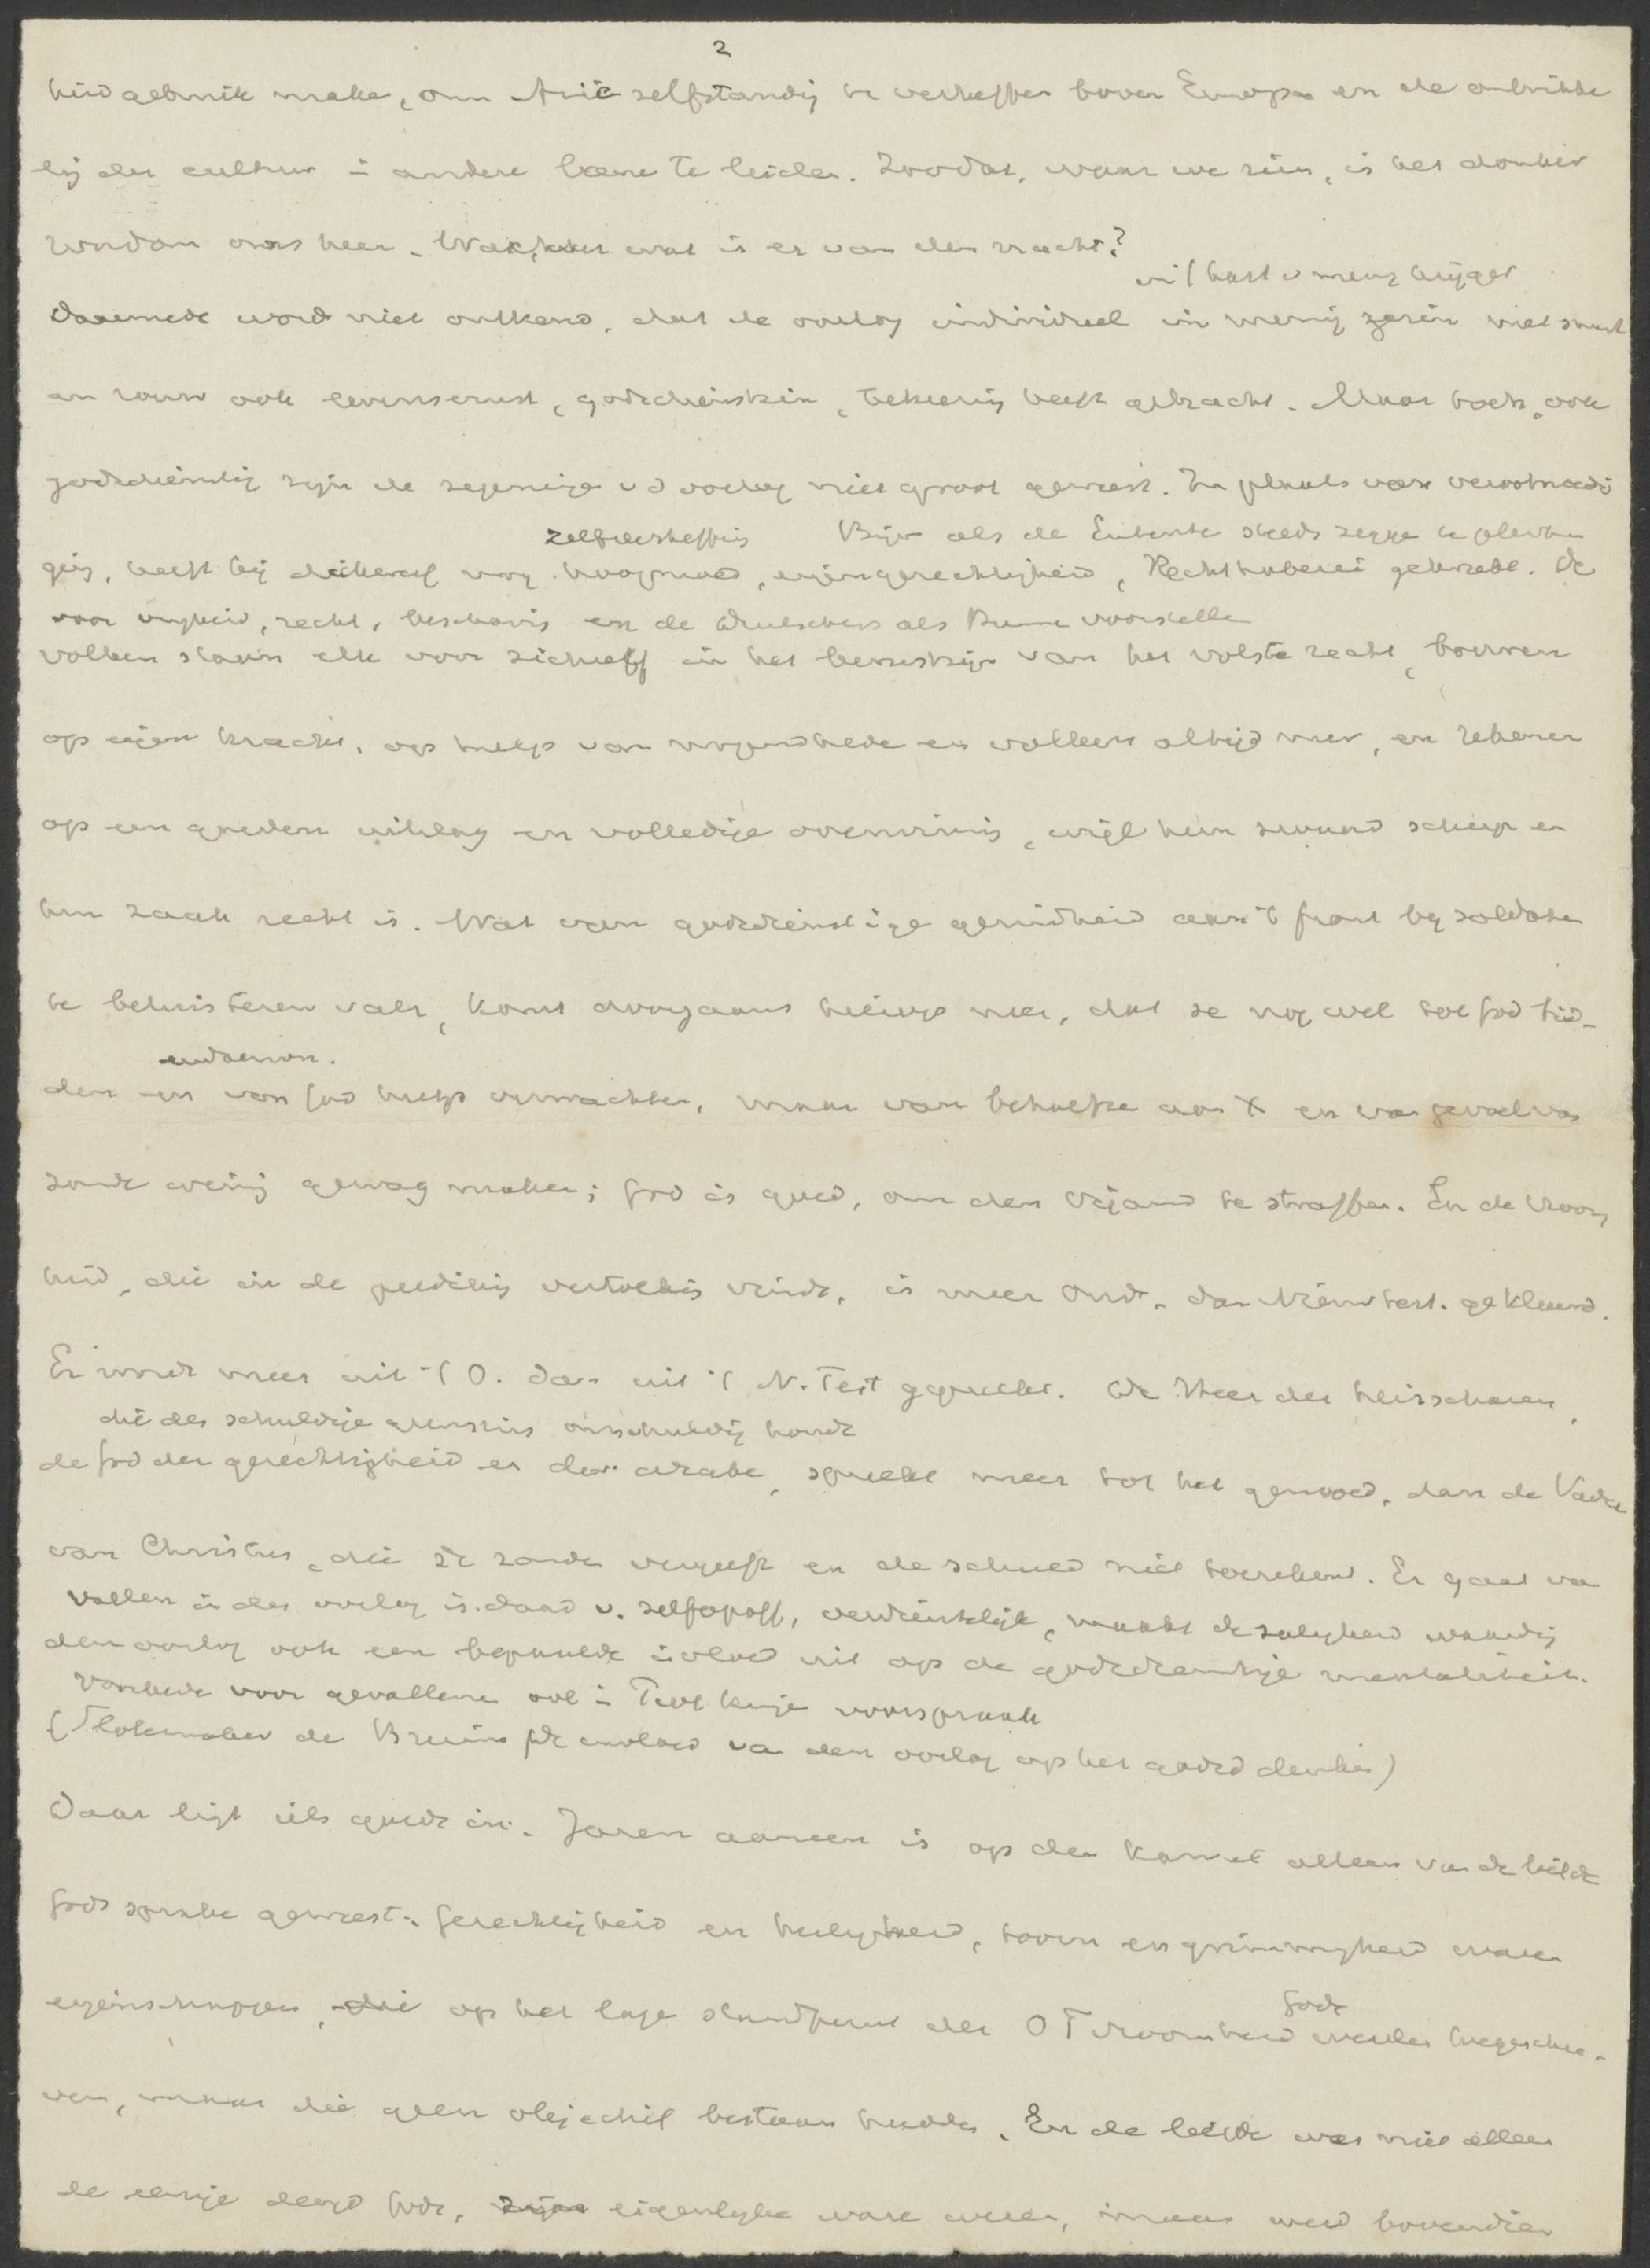 2
heid gebruik make, om Azië zelfstandig te verheffen boven Europa en de ontwikke
lig der cultuur i andere bane te leiden. Zoodat, waar we zien, is het donker
rondom ons heen. Wachter wat is er van den nacht?
in 't hart v menig krijger
Daarmede word niet ontkend, dat de oorlog individueel in menig gezin met smart
en rouw ook levensernst, godsdienstzin, bekeering heeft gebracht. Maar toch, ook
godsdienstig zijn de zegeninge v d oorlog niet groot geweest. In plaats van verootmoedi
zelfverheffing Bijv als de Entente steeds zegge te pleiten
ging, heeft hij dikwerf nog hoogmoed, eigengerechtigheid, Rechthaberei gekweekt. De
voor vrijheid, recht, beschaving en de Duitschers als voorstellen
volken staan elk voor zichzelf in het bewustzijn van het volste recht, bouwen
op eigen kracht, op hulp van bondgenooten en volken altijd meer, en rekenen
op een goeden uitslag en volledige overwinning, wijl hun zwaard scherp en
hun zaak recht is. Wat van godsdienstige gezindheid aan 't front bij soldaten
te beluisteren valt, komt doorgaans hierop neer, dat ze nog wel tot God bid-
eudaemon.
den en van God hulp verwachten, maar van behoefte aan X en van gevoel van
zonde weinig gewag maken; God is goed, om den vijand te straffen. En de vroom
heid, die in de prediking vertolking vindt, is meer Oud. dan Nieuwtest. gekleurd.
Er wordt meer uit 't O. dan uit 't N. Test gepreekt. De Heer der heirscharen,
die den schuldige geenszins onschuldig houdt
de God der gerechtigheid en der wrake, spreekt meer tot het gemoed, dan de Vader
van Christus, die de zonde vergeeft en de schuld niet toerekent. Er gaat va
vallen in den oorlog is daad v. zelfopoff, verdienstelijk, maakt de zaligheid waardig
den oorlog ook een bepaalde invloed uit op de godsdienstige mentaliteit.
Voorbede voor gevallenen ook i voorspraak
de Bruine De invloed van den oorlog op het godsd denken)
Daar ligt iets goeds in. Jaren aaneen is op den kansel alleen van de liefde
Gods sprake geweest. Gerechtigheid en heiligheid, toorn en grimmigheid waren
Gode
eigenschappen, die op het lage standpunt der OT vroomheid werden toegeschre-
ven, maar die geen objectief bestaan hadden. En de liefde was niet alleen
de eenige deugd Gods, zijn eigenlijke ware wezen, maar werd bovendien